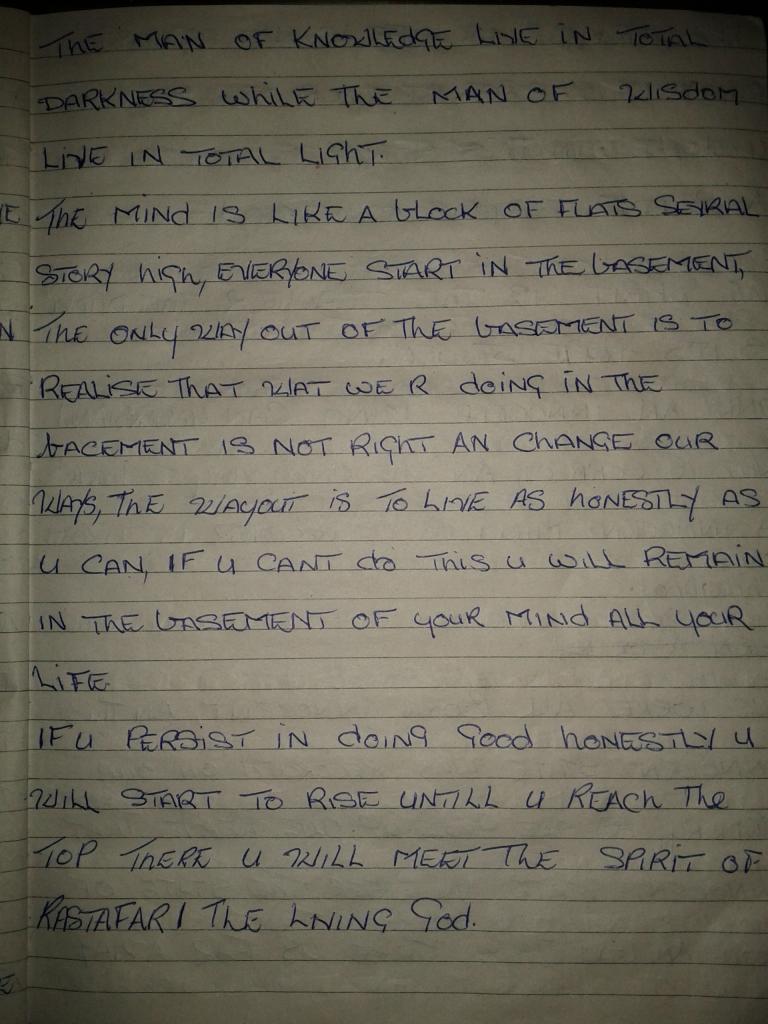 THE MAN OF KNOWLEDGE LIVE IN TOTAL
DARKNESS WHILE THE MAN OF WISDOM
LIVE IN TOTAL LIGHT.
THE MIND IS LIKE A BLOCK OF FLATS SEVRAL
STORY HIGH, EVERYONE START IN THE BASEMENT,
THE ONLY WAY OUT OF THE BASEMENT IS TO
REALISE THAT WAT WE R DOING IN THE
BACEMENT IS NOT RIGHT AN CHANGE OUR
WAYS, THE WAYOUT IS TO LIVE AS HONESTLY AS
U CAN, IF U CANT DO THIS U WILL REMAIN
IN THE BASEMENT OF YOUR MIND ALL YOUR
LIFE.
IF U PERSIST IN DOING GOOD HONESTLY U
WILL START TO RISE UNTILL U REACH THE
TOP THERE U WILL MEET THE SPIRIT OF
RASTAFARI THE LIVING GOD.